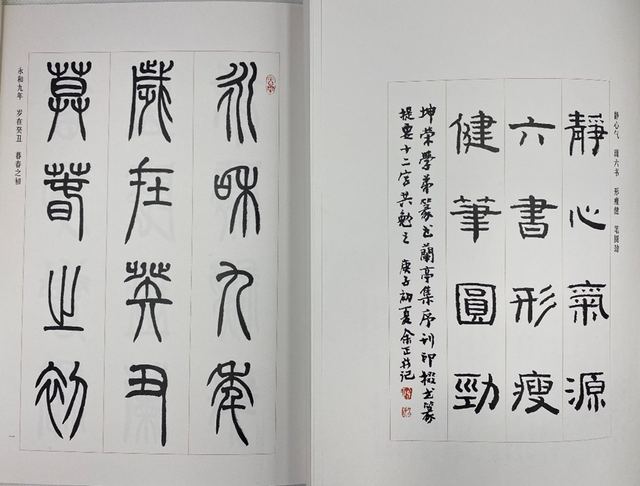 静心气 源六书 形瘦健 笔圆劲
靜心氣源
六書形瘦
健筆圓勁
坤榮學弟篆书蘭亭集序刊印掇书篆
提要十二言共勉之 庚子初夏余正记
永和九年
歲在癸丑
暮春之初
永和九年 岁在癸丑 暮春之初
一